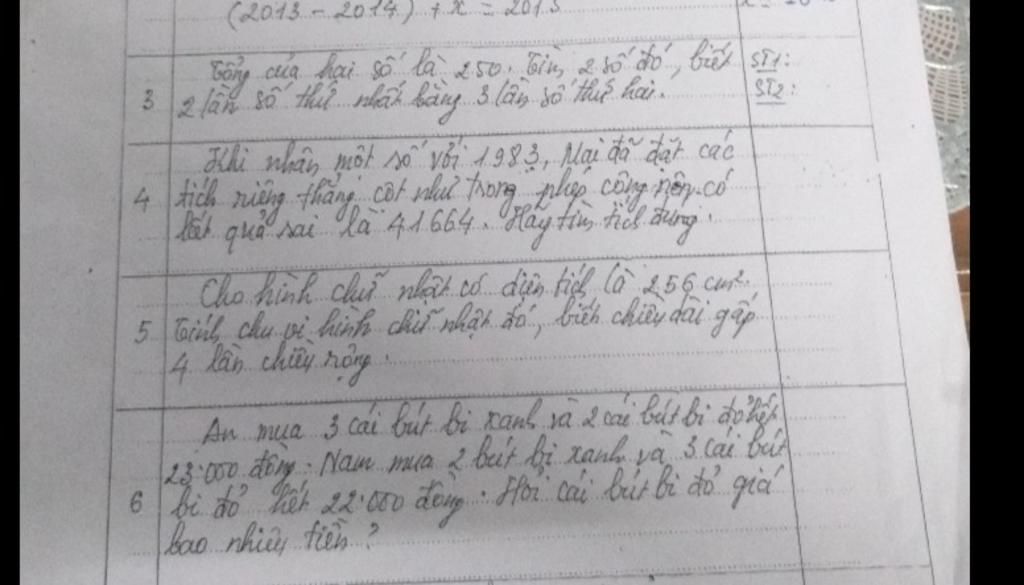 (2013 - 2014) + x = 2013
3
Tổng của hai số là 250. Tìm 2 số đó, biết
2 lần số thứ nhất bằng 3 lần số thứ hai.
ST1:
ST2:
4
Khi nhân một số với 1983, Mai đã đặt các
tích riêng thẳng cột như trong phép cộng nên có
kết quả sai là 41664. Hãy tìm tích đúng.
5
Cho hình chữ nhật có diện tích là 256 cm².
Tính chu vi hình chữ nhật đó, biết chiều dài gấp
4 lần chiều rộng.
6
An mua 3 cái bút bi xanh và 2 cái bút bi đỏ hết
23.000 đồng. Nam mua 2 bút bi xanh và 3 cái bút
bi đỏ hết 22.000 đồng. Hỏi cái bút bi đỏ giá
bao nhiêu tiền?